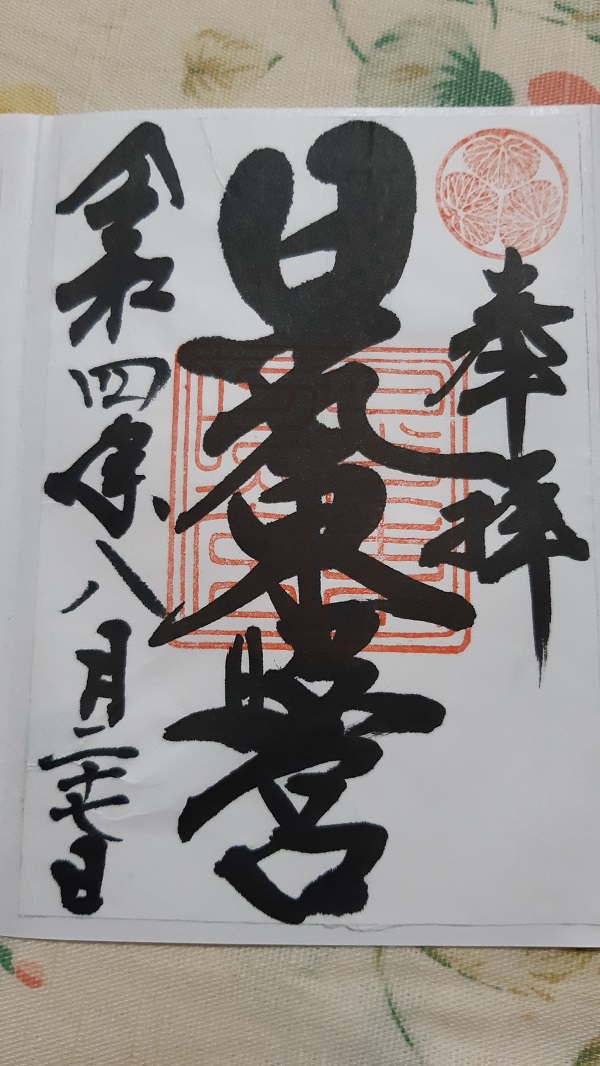 奉拝
日光東照宮
令和四年八月二十七日